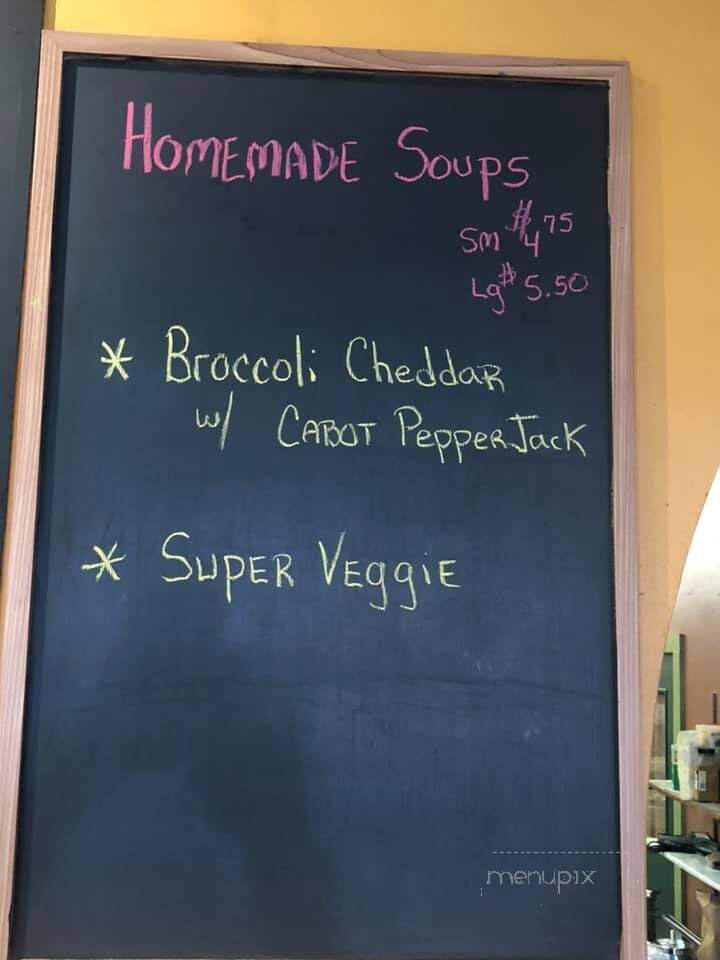 HOMEMADE SOUPS
Sm $4.75
Lg $5.50
* Broccoli Cheddar
w/ CABOT PepperJack
* SUPER VEggiE
menupix